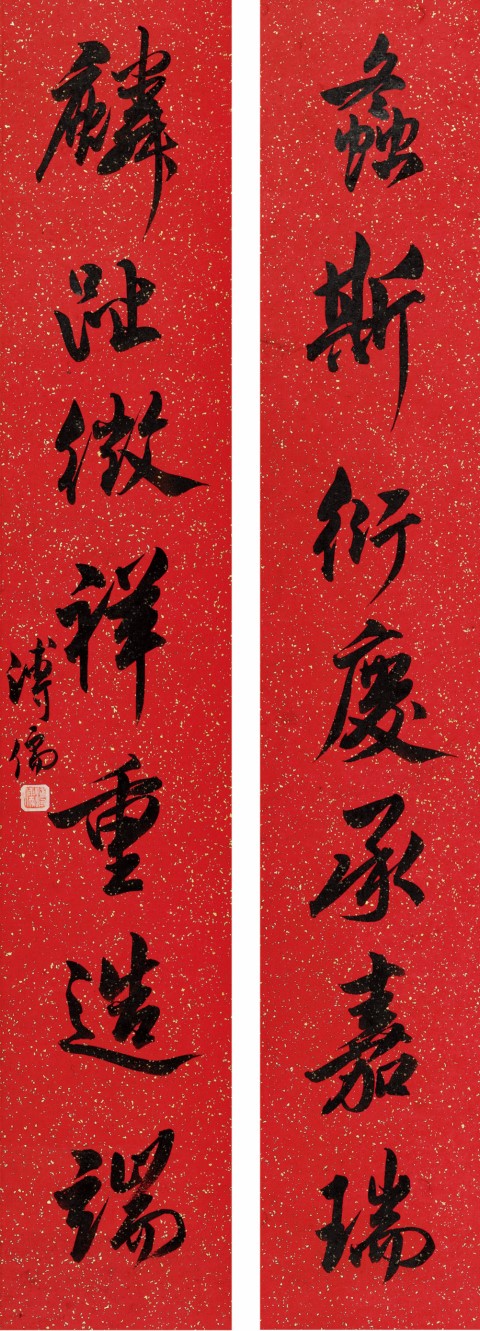 螽斯衍慶承嘉瑞
麟趾徵祥重造端
溥儒